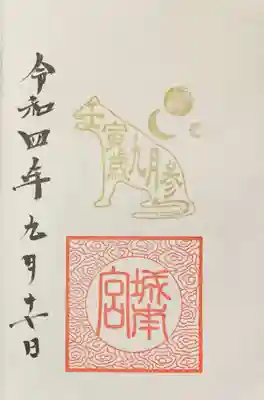 壬寅歳
九月参
城南宮
令和四年九月十日